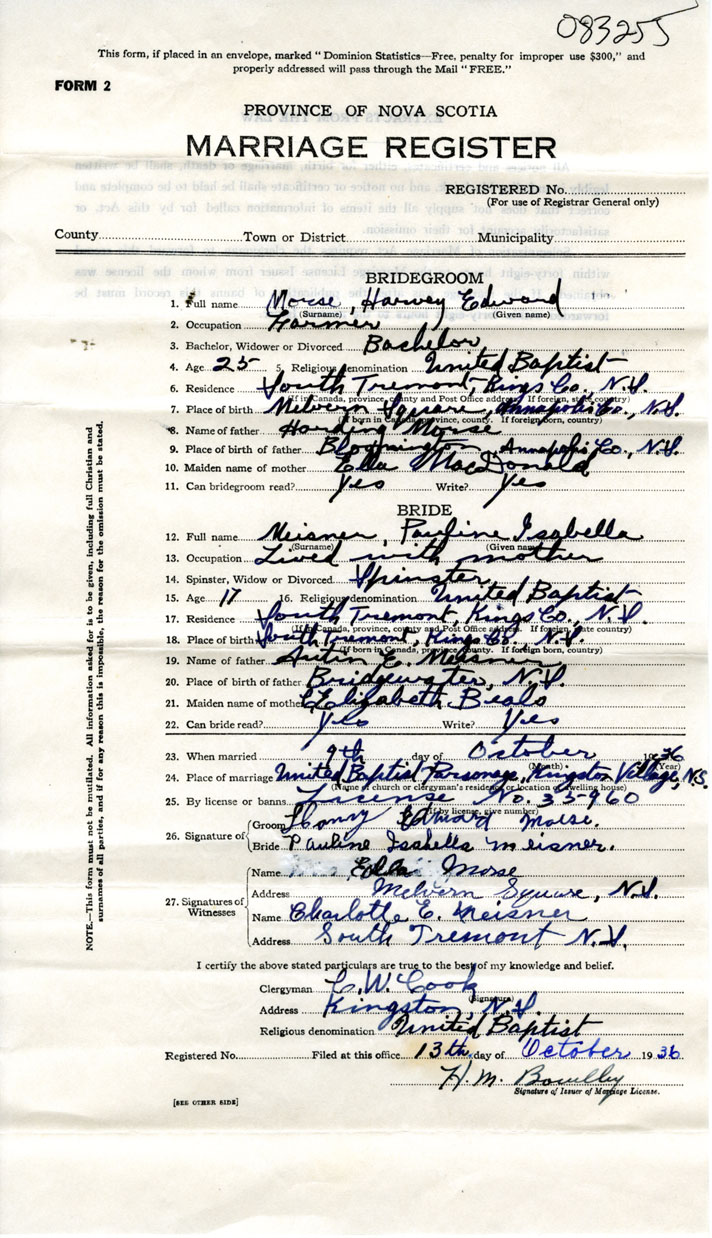 083255
This form, if placed in an envelope, marked "Dominion Statistics—Free, penalty for improper use $300," and
properly addressed will pass through the Mail "FREE."
FORM 2
PROVINCE OF NOVA SCOTIA
MARRIAGE REGISTER
REGISTERED No.
(For use of Registrar General only)
County Town or District Municipality
BRIDEGROOM
1. Full name Morse, Harvey Edward
(Surname) (Given name)
2. Occupation Farmer
3. Bachelor, Widower or Divorced Bachelor
4. Age 25 5. Religious denomination United Baptist
6. Residence South Tremont, Kings Co., N.S.
(If in Canada, province, county and Post Office address. If foreign, state country)
7. Place of birth Melvern Square, Annapolis Co., N.S.
(If born in Canada, province, county. If foreign born, country)
8. Name of father Harding Morse
9. Place of birth of father Bloomington, Annapolis Co., N.S.
10. Maiden name of mother Ella MacDonald
11. Can bridegroom read? Yes Write? Yes
BRIDE
12. Full name Meisner, Pauline Isabella
(Surname) (Given name)
13. Occupation Lived with mother
14. Spinster, Widow or Divorced Spinster
15. Age 17 16. Religious denomination United Baptist
17. Residence South Tremont, Kings Co., N.S.
(If in Canada, province, county and Post Office address. If foreign, state country)
18. Place of birth South Tremont, Kings Co. N.S.
(If born in Canada, province, county. If foreign born, country)
19. Name of father E. Meisner
20. Place of birth of father Bridgewater, N.S.
21. Maiden name of mother Elizabeth Beals
22. Can bride read? Yes Write? Yes
23. When married 9th day of October 1936
(Month) (Year)
24. Place of marriage United Baptist Parsonage, Kingston Village, N.S.
(Name of church or clergyman's residence or location of dwelling house)
25. By license or banns License No. 35960
(If by license, give number)
26. Signature of Groom Edward Morse.
Bride Pauline Isabella Meisner.
27. Signatures of Witnesses Name Ella Morse
Address Melvern Square, N.S.
Name Charlotte E. Meisner
Address South Tremont N.S.
I certify the above stated particulars are true to the best of my knowledge and belief.
Clergyman W. Cook
(Signature)
Address Kingston, N.S.
Religious denomination United Baptist
Registered No. Filed at this office 13th day of October 1936
H. M.
Signature of Issuer of Marriage License.
[SEE OTHER SIDE]
NOTE.—This form must not be mutilated. All information asked for is to be given, including full Christian and
surnames of all parties, and if for any reason this is impossible, the reason for the omission must be stated.